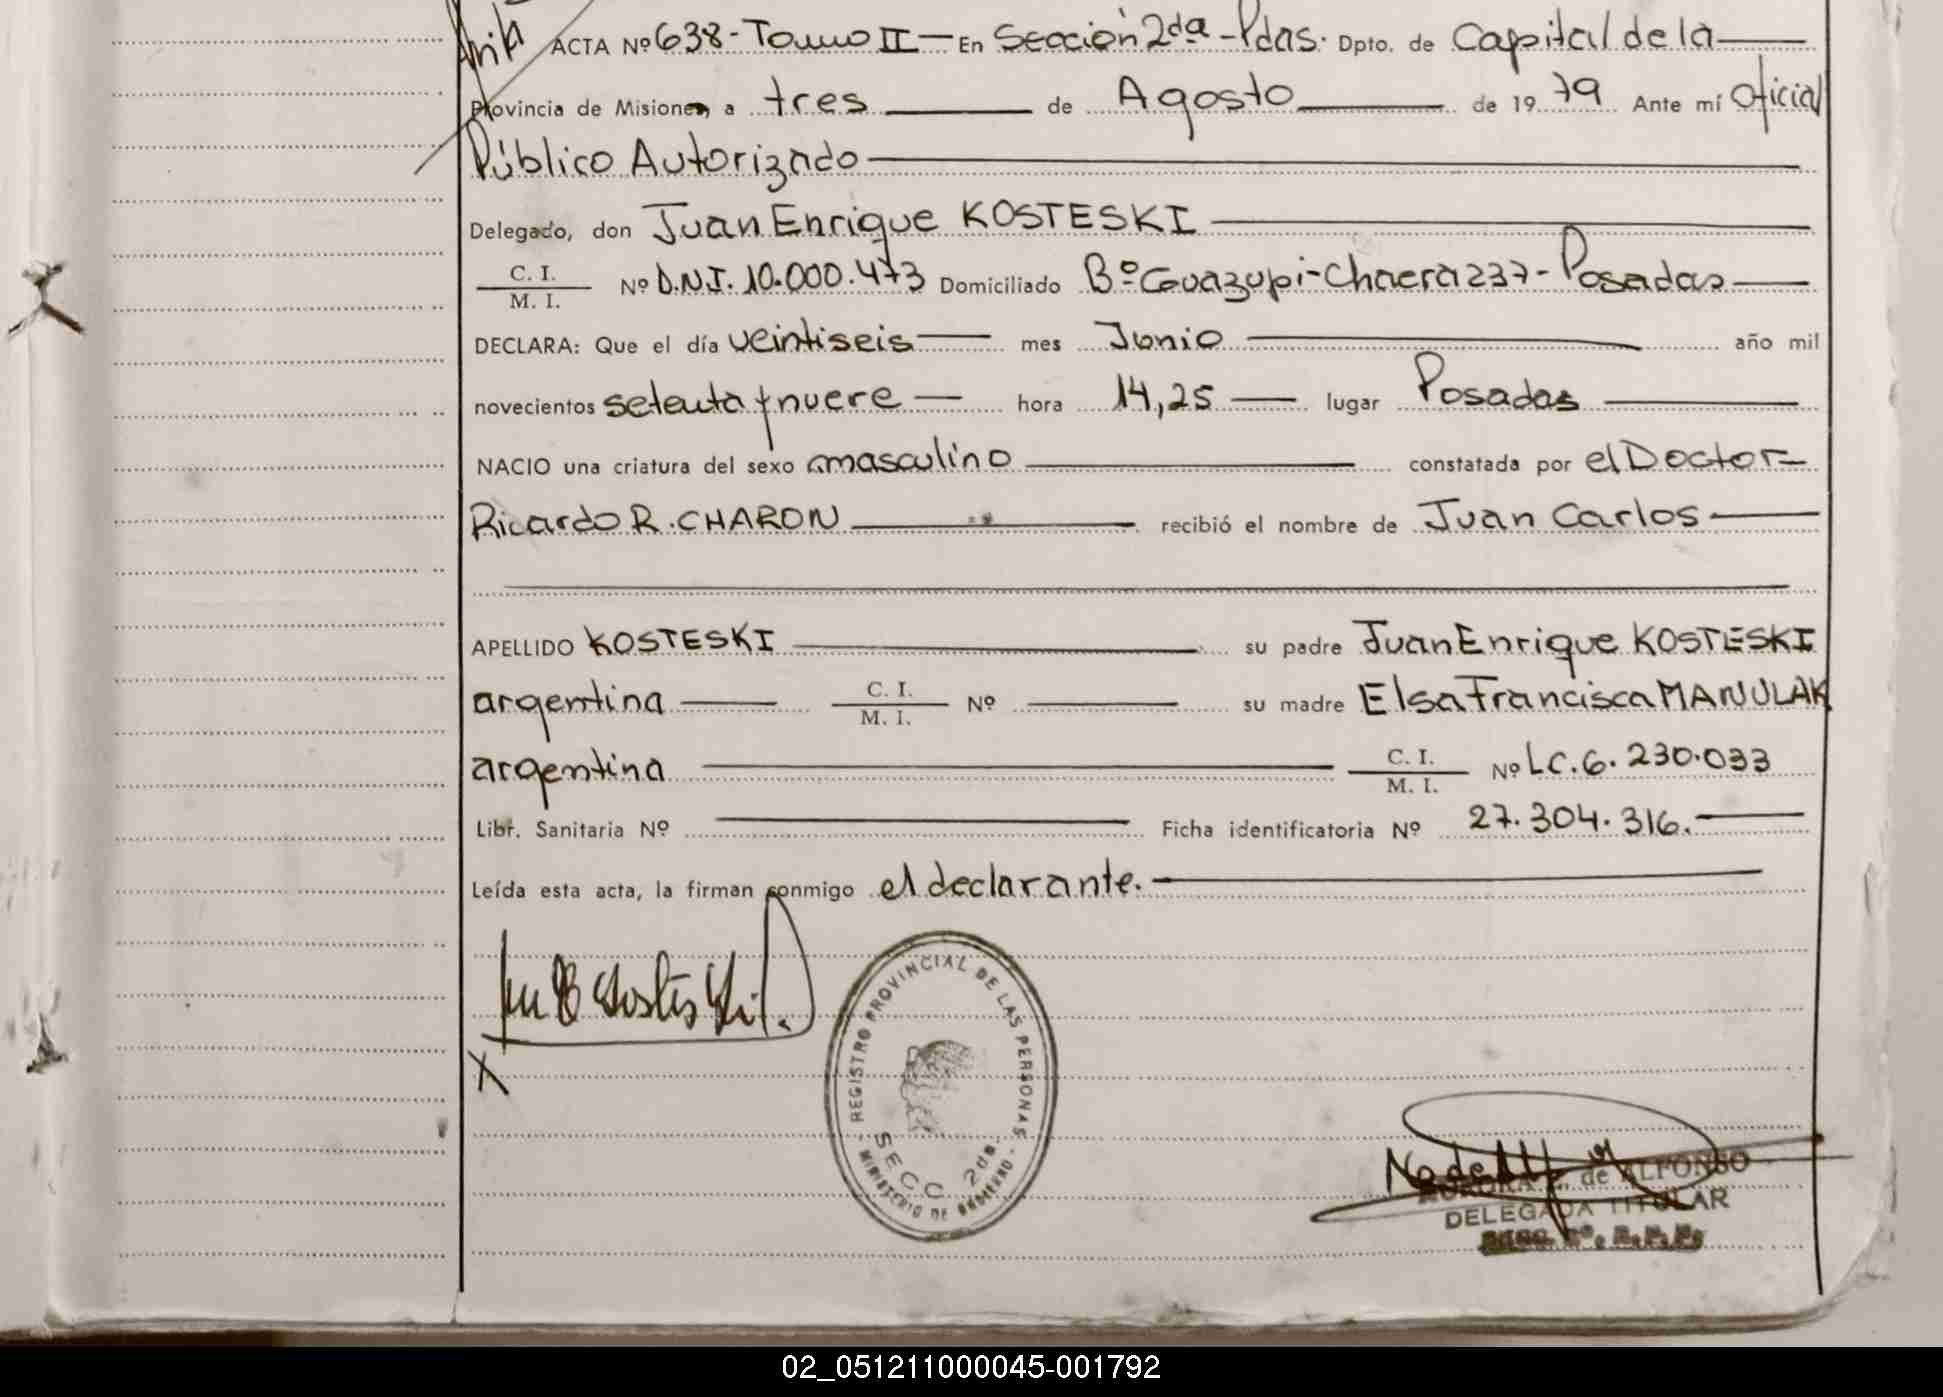 ACTA Nº 638 - Tomo II — En Sección 2da - Pdas. Dpto. de Capital de la
Provincia de Misiones, a tres de Agosto de 1979 Ante mí Oficial
Público Autorizado
Delegado, don Juan Enrique KOSTESKI
C. I.
M. I.
Nº D.N.I. 10.000.473 Domiciliado Bº Guazupi - Chacra 237 - Posadas
DECLARA: Que el día veintiseis mes Junio año mil
novecientos setenta y nueve hora 14,25 lugar Posadas
NACIO una criatura del sexo masculino constatada por el Doctor
Ricardo R. CHARON recibió el nombre de Juan Carlos
APELLIDO KOSTESKI su padre Juan Enrique KOSTESKI
argentina C. I. M. I. Nº su madre Elsa Francisca MANULAK
argentina C. I. M. I. Nº LC. 6.230.033
Libr. Sanitaria Nº Ficha identificatoria Nº 27.304.316.
Leída esta acta, la firman conmigo el declarante.
REGISTRO PROVINCIAL DE LAS PERSONAS
SECC 2da.
MINISTERIO DE GOBIERNO
X
AURORA de ALFONSO
DELEGADA TITULAR
02_051211000045-001792